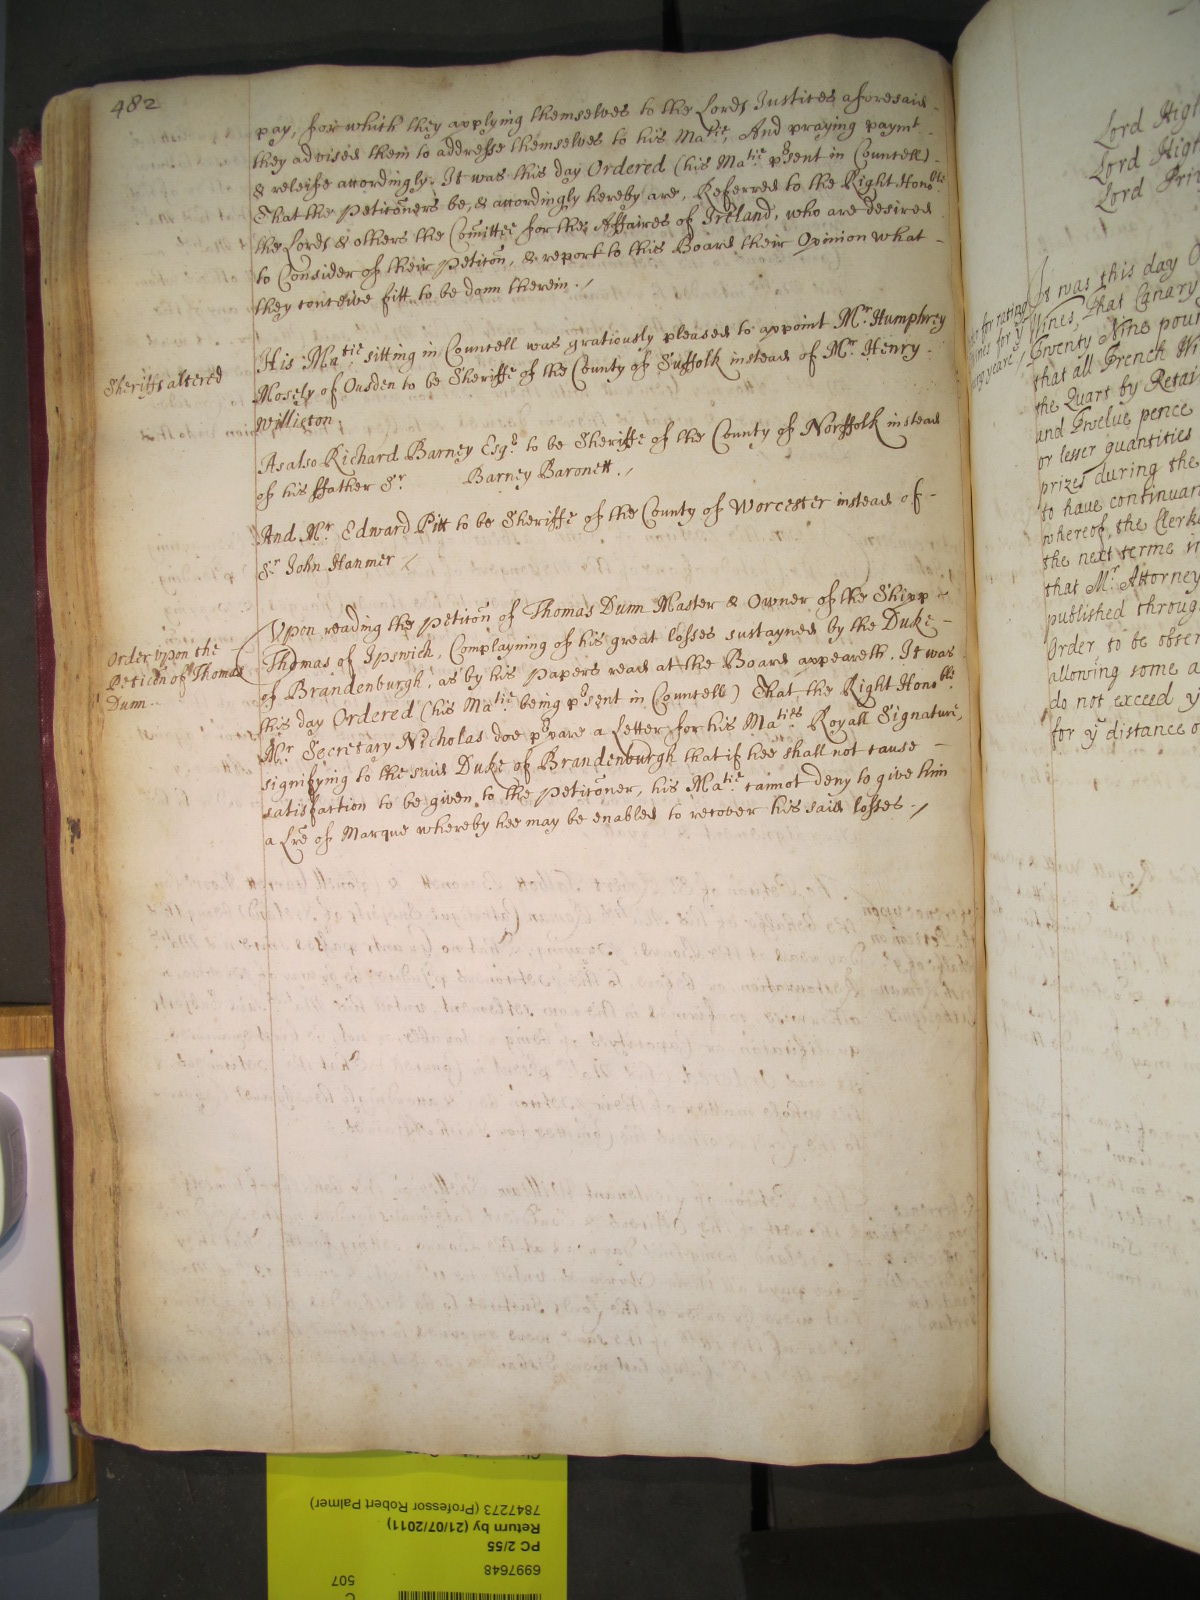 482
pay, for which they applying themselves to the Lords Justices aforesaid
they advised them to addresse themselves to his Ma^tie, And praying paym^t
& releife accordingly. It was this day Ordered (his Ma^tie p^r sent in Councell)
That the Peticõners be, & accordingly hereby are, Referred to the Right Hono^ble
the Lords & others the Com̃ittee for the Affaires of Ireland, who are desired
to Consider of their Peticõn, & report to this Board their Opinion what
they conceive fitt to be donn therein ./
Sheriffs altered
His Ma^tie sitting in Councell was gratiously pleased to appoint M^r Humphrey
Mosely of Ousden to be Sheriffe of the County of Suffolk instead of M^r Henry
Willieton;
As also Richard Barney Esq^r to be Sheriffe of the County of Norffolk instead
of his ffather S^r Barney Baronett ./
And M^r Edward Pitt to be Sheriffe of the County of Worcester instead of
S^r John Hanmer /
Order vpon the
Peticõn of Thomas
Dunn
Vpon reading the Peticõn of Thomas Dunn Master & Owner of the Shipp
Thomas of Ipswich, Complayning of his great losses sustayned by the Duke
of Brandenburgh, as by his Papers read at the Board appeareth. It was
this day Ordered (his Ma^tie being p^r sent in Councell) That the Right Hono^ble
M^r Secretary Nicholas doe p^r pare a Letter for his Ma^ties Royall Signature,
signifying to the said Duke of Brandenburgh that if hee shall not cause
satisfaction to be given to the Peticõner, his Ma^tie cannot deny to give him
a Lr̃e of Marque whereby hee may be enabled to recover his said losses ./
Lord High
Lord High
Lord Priv
for rating
for y^e
yeare
It was this day O
Wines, That Canary
Twenty Nine poun
that all French Wi
the Quart by Retai
and Twelve pence
or lesser quantities
prizes during the
to have continuan
whereof the Clerke
the next terme in
that M^r Attorney
published throug
Order to be obser
allowing some a
do not exceed y
for y^e distance o
6997648
PC 2/55
Return by (21/07/2011)
7847273 (Professor Robert Palmer)
507